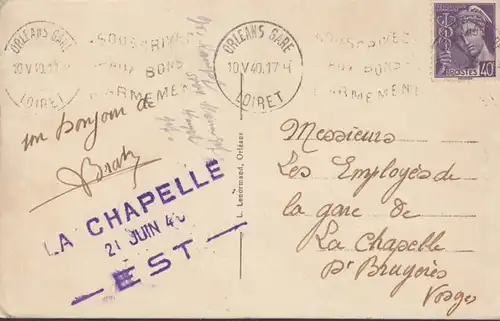 ORLEANS GARE
10 V 40.17 H
LOIRET
SOUSCRIVEZ
AUX BONS
D'ARMEMENT
ORLEANS GARE
10 V 40.17 H
LOIRET
SOUSCRIVEZ
AUX BONS
D'ARMEMENT
POSTES 40
un bonjour de
LA CHAPELLE
21 JUIN 4
EST
L. Lenormand, Orléans
Messieurs
Les Employés de
la gare de
La Chapelle
Bruyères
Vosges